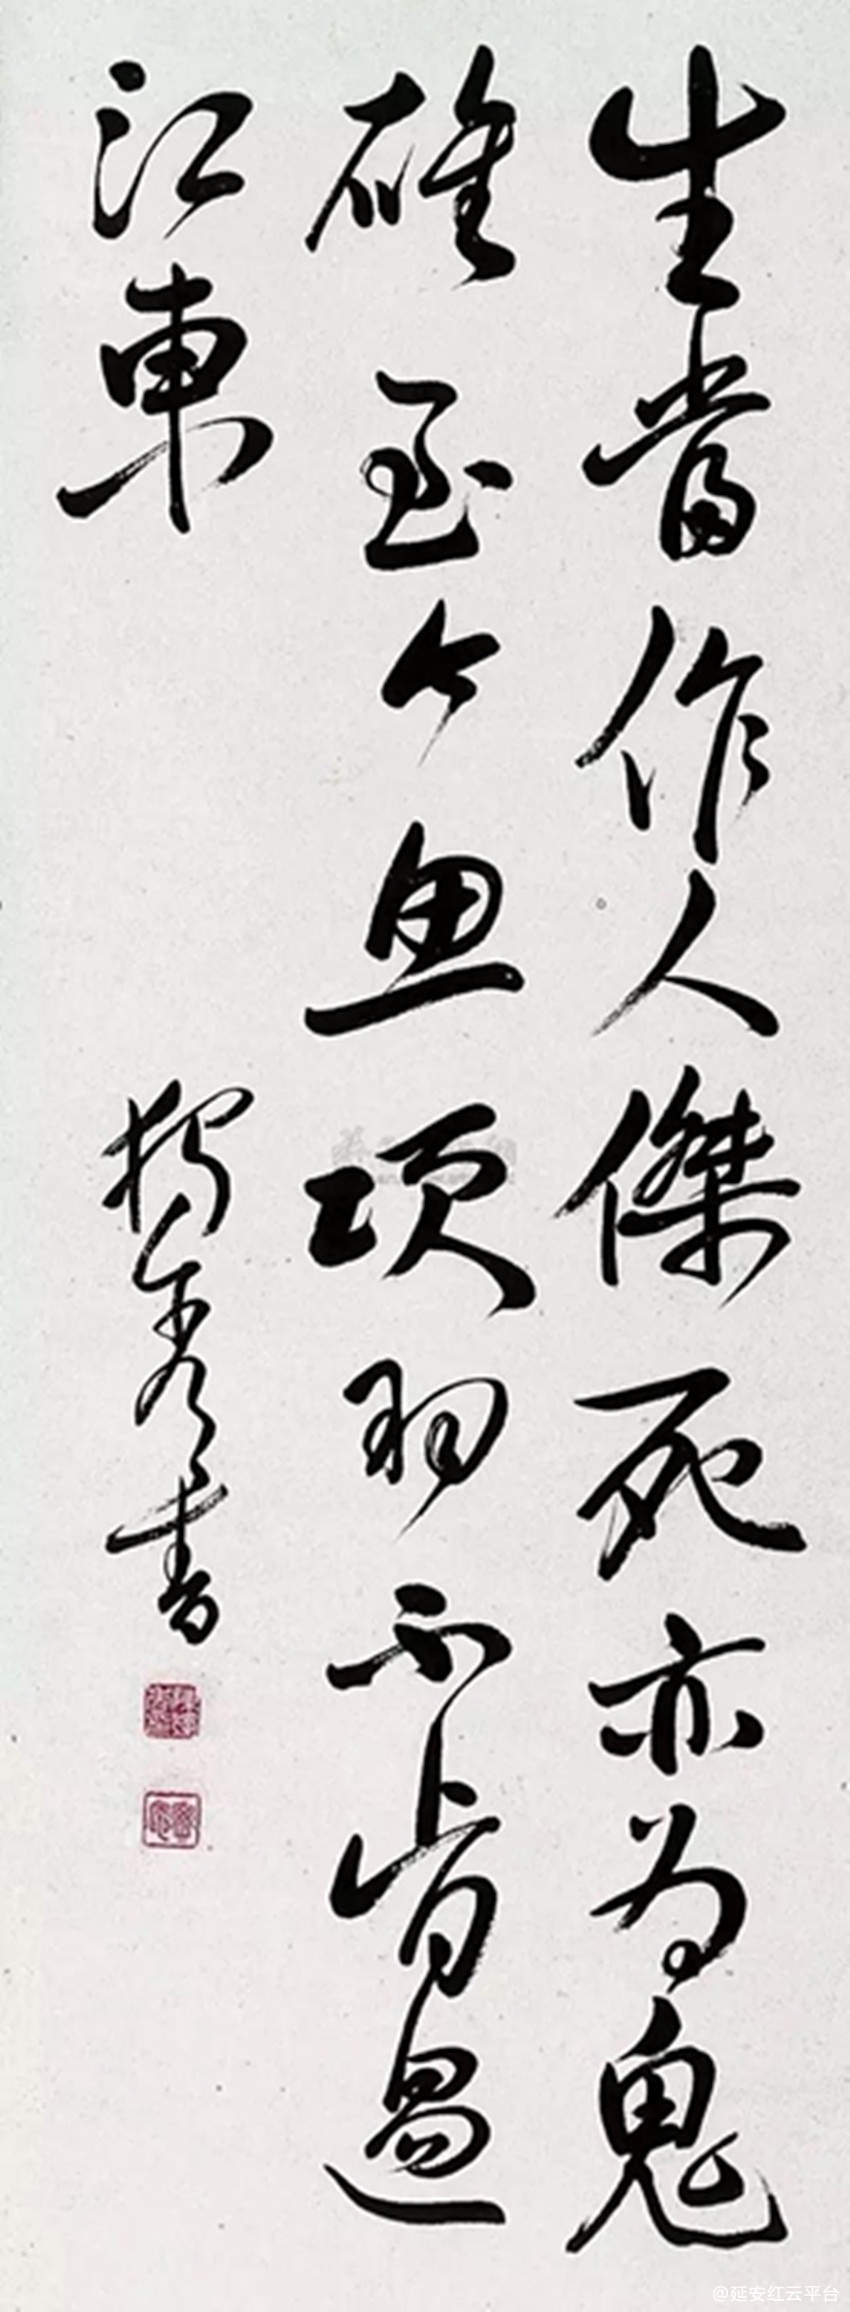 生當作人傑死亦為鬼
雄至今思項羽不肯過
江東
獨秀書
@延安红云平台